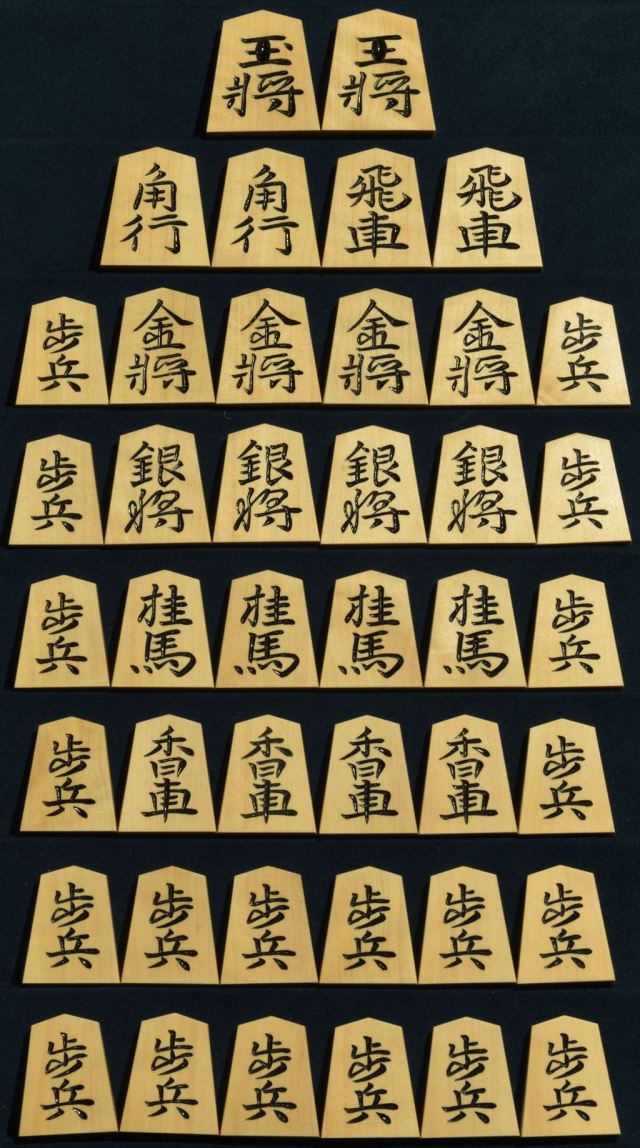 玉将 王将
角行 角行 飛車 飛車
歩兵 金将 金将 金将 金将 歩兵
歩兵 銀将 銀将 銀将 銀将 歩兵
歩兵 桂馬 桂馬 桂馬 桂馬 歩兵
歩兵 香車 香車 香車 香車 歩兵
歩兵 歩兵 歩兵 歩兵 歩兵 歩兵
歩兵 歩兵 歩兵 歩兵 歩兵 歩兵